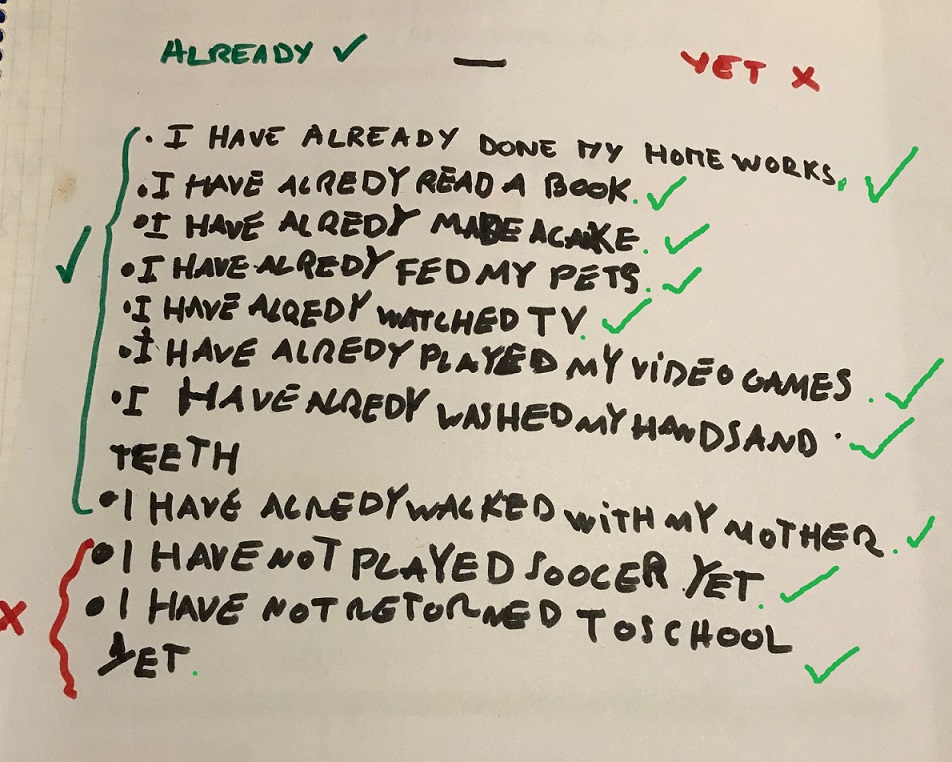 ALREADY ✓ — YET X
• I HAVE ALREADY DONE MY HOMEWORKS.
• I HAVE ALREDY READ A BOOK.
• I HAVE ALREDY MADE A CAKE.
• I HAVE ALREDY FED MY PETS.
• I HAVE ALREDY WATCHED TV.
• I HAVE ALREDY PLAYED MY VIDEO GAMES.
• I HAVE ALREDY WASHED MY HANDS AND
TEETH
• I HAVE ALREDY WALKED WITH MY MOTHER.
• I HAVE NOT PLAYED SOOCER YET.
• I HAVE NOT RETORNED TO SCHOOL
YET.